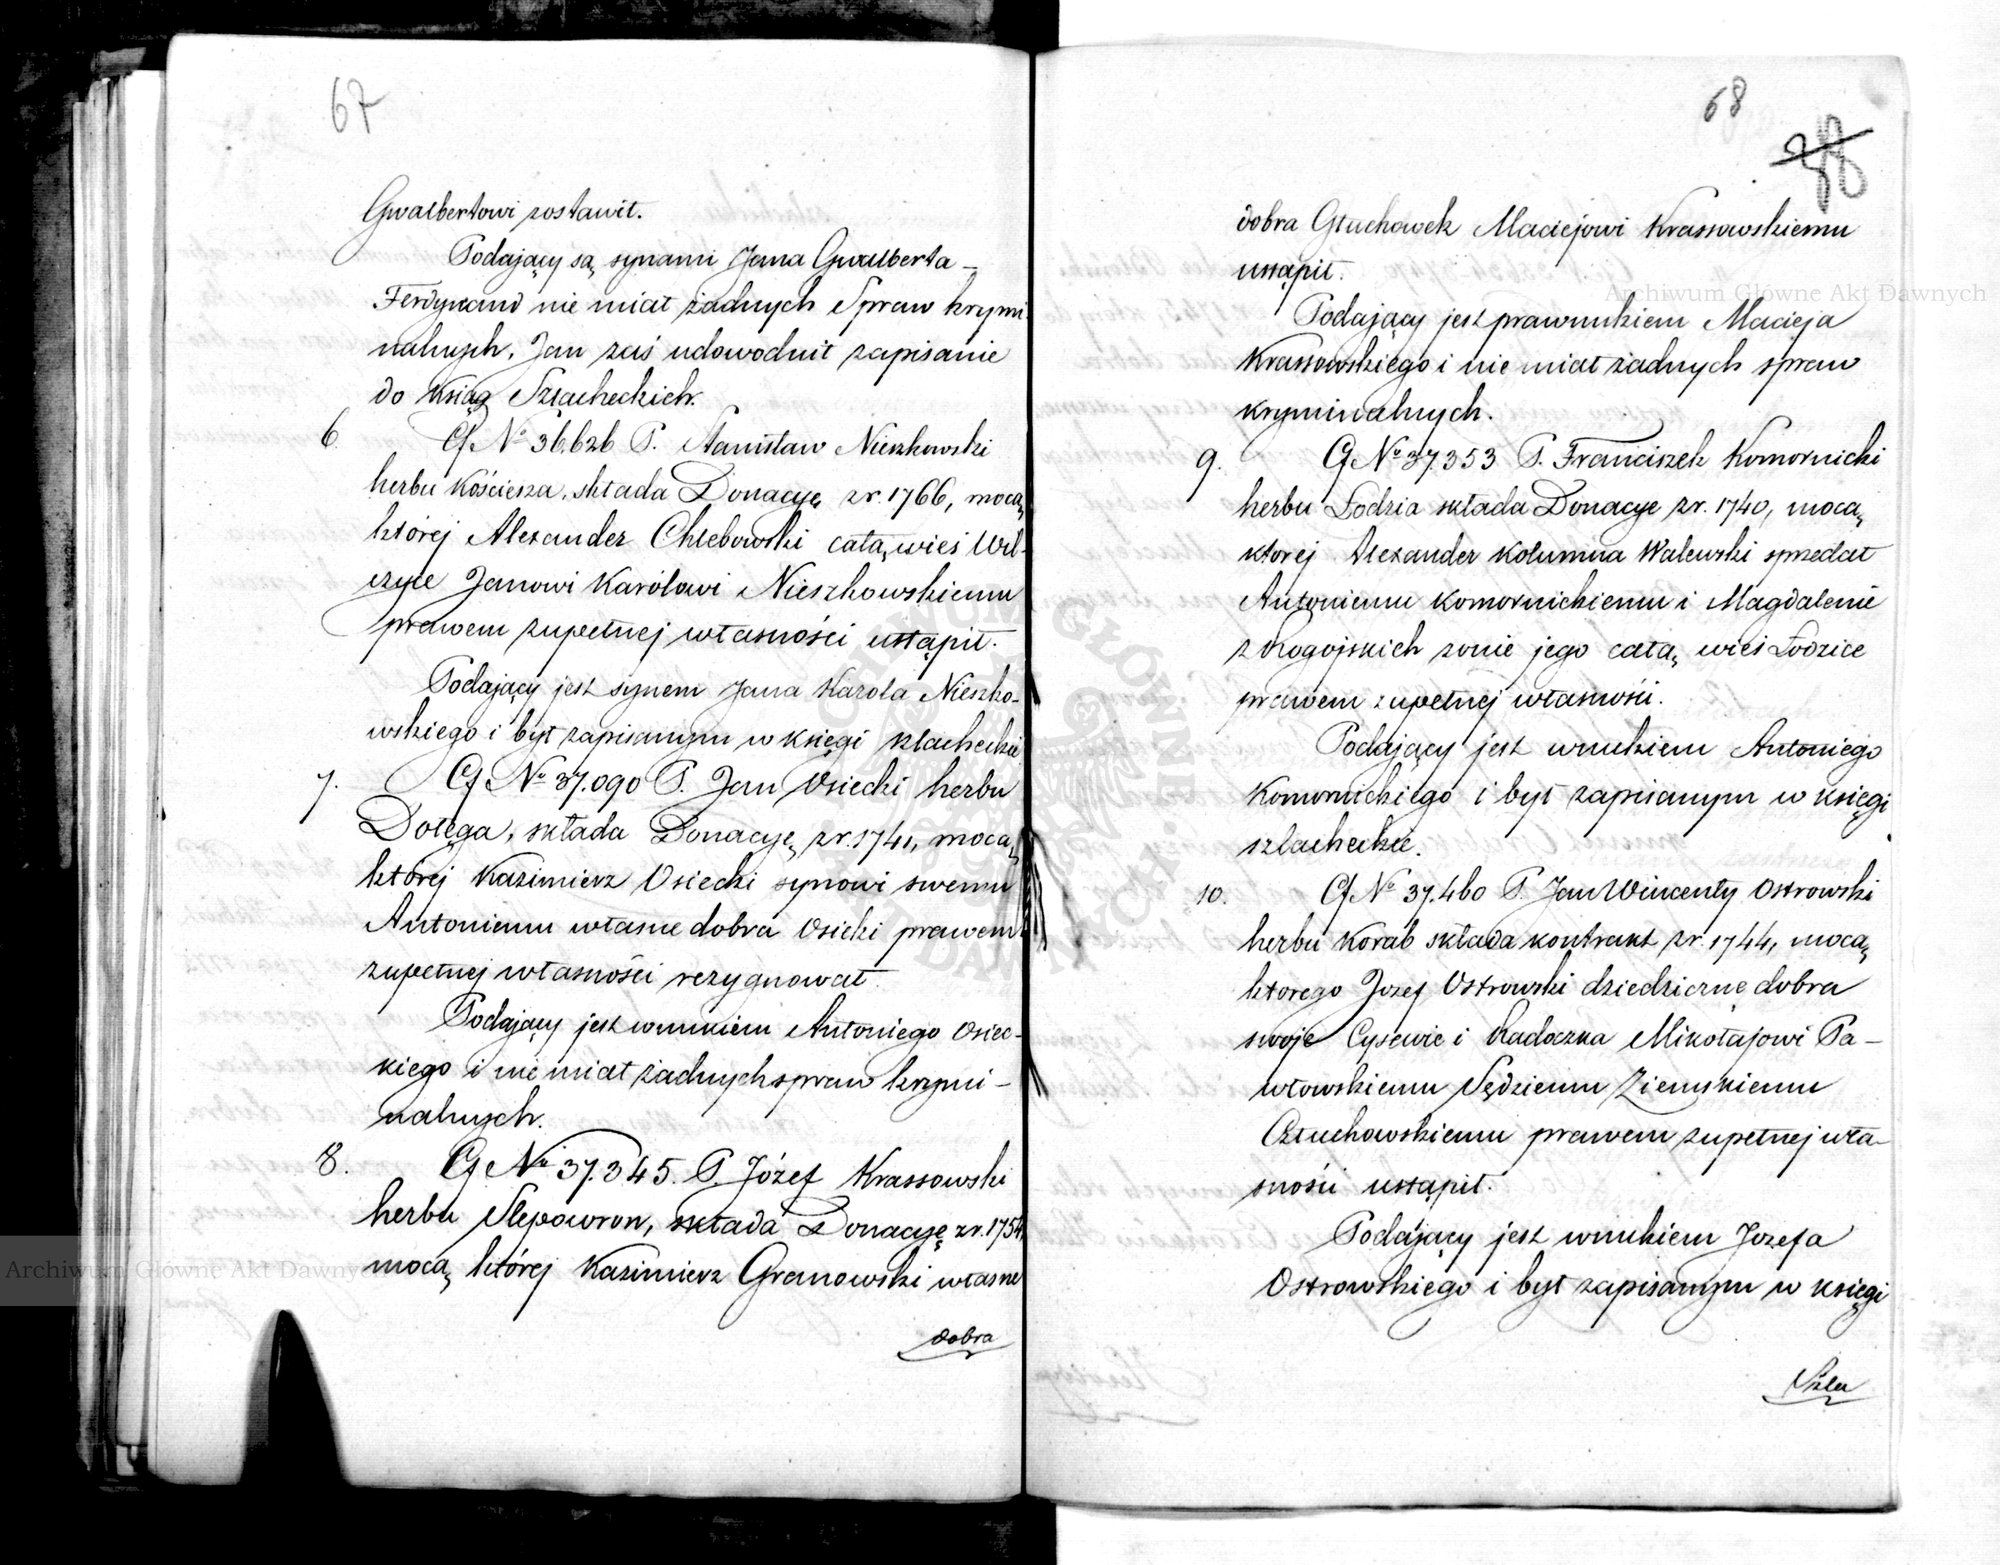 67
Gwalbertowi zostawił.
Podający są synami Jana Gwalberta –
Ferdynand nie miał żadnych Spraw krymi
nalnych, Jan zaś udowodnił zapisanie
do Ksiąg Szlacheckich.
6 Cf. No 36.626 P. Stanisław Nieszkowski
herbu Kościesza, składa Donacyę z r. 1766, mocą
której Alexander Chlebowski całą wieś Wil-
czyce Janowi Karólowi Nieszkowskiemu
prawem zupełnej własności ustąpił.
Podający jest synem Jana Karola Nieszko-
wskiego i był zapisanym w księgi szlacheckie
7. Cf. No 37.090 P. Jan Osiecki herbu
Dołęga, składa Donacyę z r. 1741, mocą
której Kazimierz Osiecki synowi swemu
Antoniemu własne dobra Osieki prawem
zupełnej własności rezygnował.
Podający jest wnukiem Antoniego Osiec-
kiego i nie miał żadnych spraw krymi –
nalnych.
8. Cf No 37.345. P. Józef Krassowski
herbu Slepowron, składa Donacyę z r. 1754,
mocą której Kazimierz Granowski własne
dobra
68
dobra Głuchowek Maciejowi Krassowskiemu
ustąpił.
Podający jest prawnukiem Macieja
Krassowskiego i nie miał żadnych spraw
kryminalnych.
9. Cf No 37.353 P. Franciszek Komornicki
herbu Łodzia składa Donacye z r. 1740, mocą
ktorej Alexander Kolumna Walewski sprzedał
Antoniemu Komornickiemu i Magdalenie
z Rogojskich zonie jego całą wieś Łodzice
prawem zupełnej własności.
Podający jest wnukiem Antoniego
Komornickiego i był zapisanym w księgi
szlacheckie.
10. Cf. No 37.460 P. Jan Wincenty Ostrowski
herbu Korab składa kontrakt z r. 1744, mocą
ktorego Jozef Ostrowski dziedziczne dobra
swoje Cysewie i Radoczka Mikołajowi Pa –
włowskiemu Sędziemu Ziemskiemu
Człuchowskiemu prawem zupełnej wła-
sności ustąpił.
Podający jest wnukiem Jozefa
Ostrowskiego i był zapisanym w księgi
Szla
Archiwum Główne Akt Dawnych
Archiwum Główne Akt Dawnych
ARCHIWUM GŁÓWNE AKT DAWNYCH